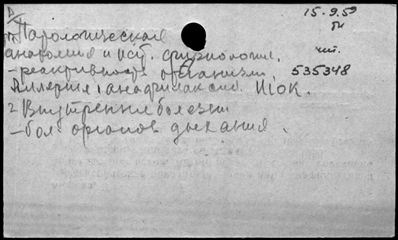 15.9.59
Патологическая
анатомия и ист. физиология.
чит.
- реактивность организма. 535348
Аллергия, анафилаксия. Шок.
2 Внутренние болезни
- бол. органов дыхания.